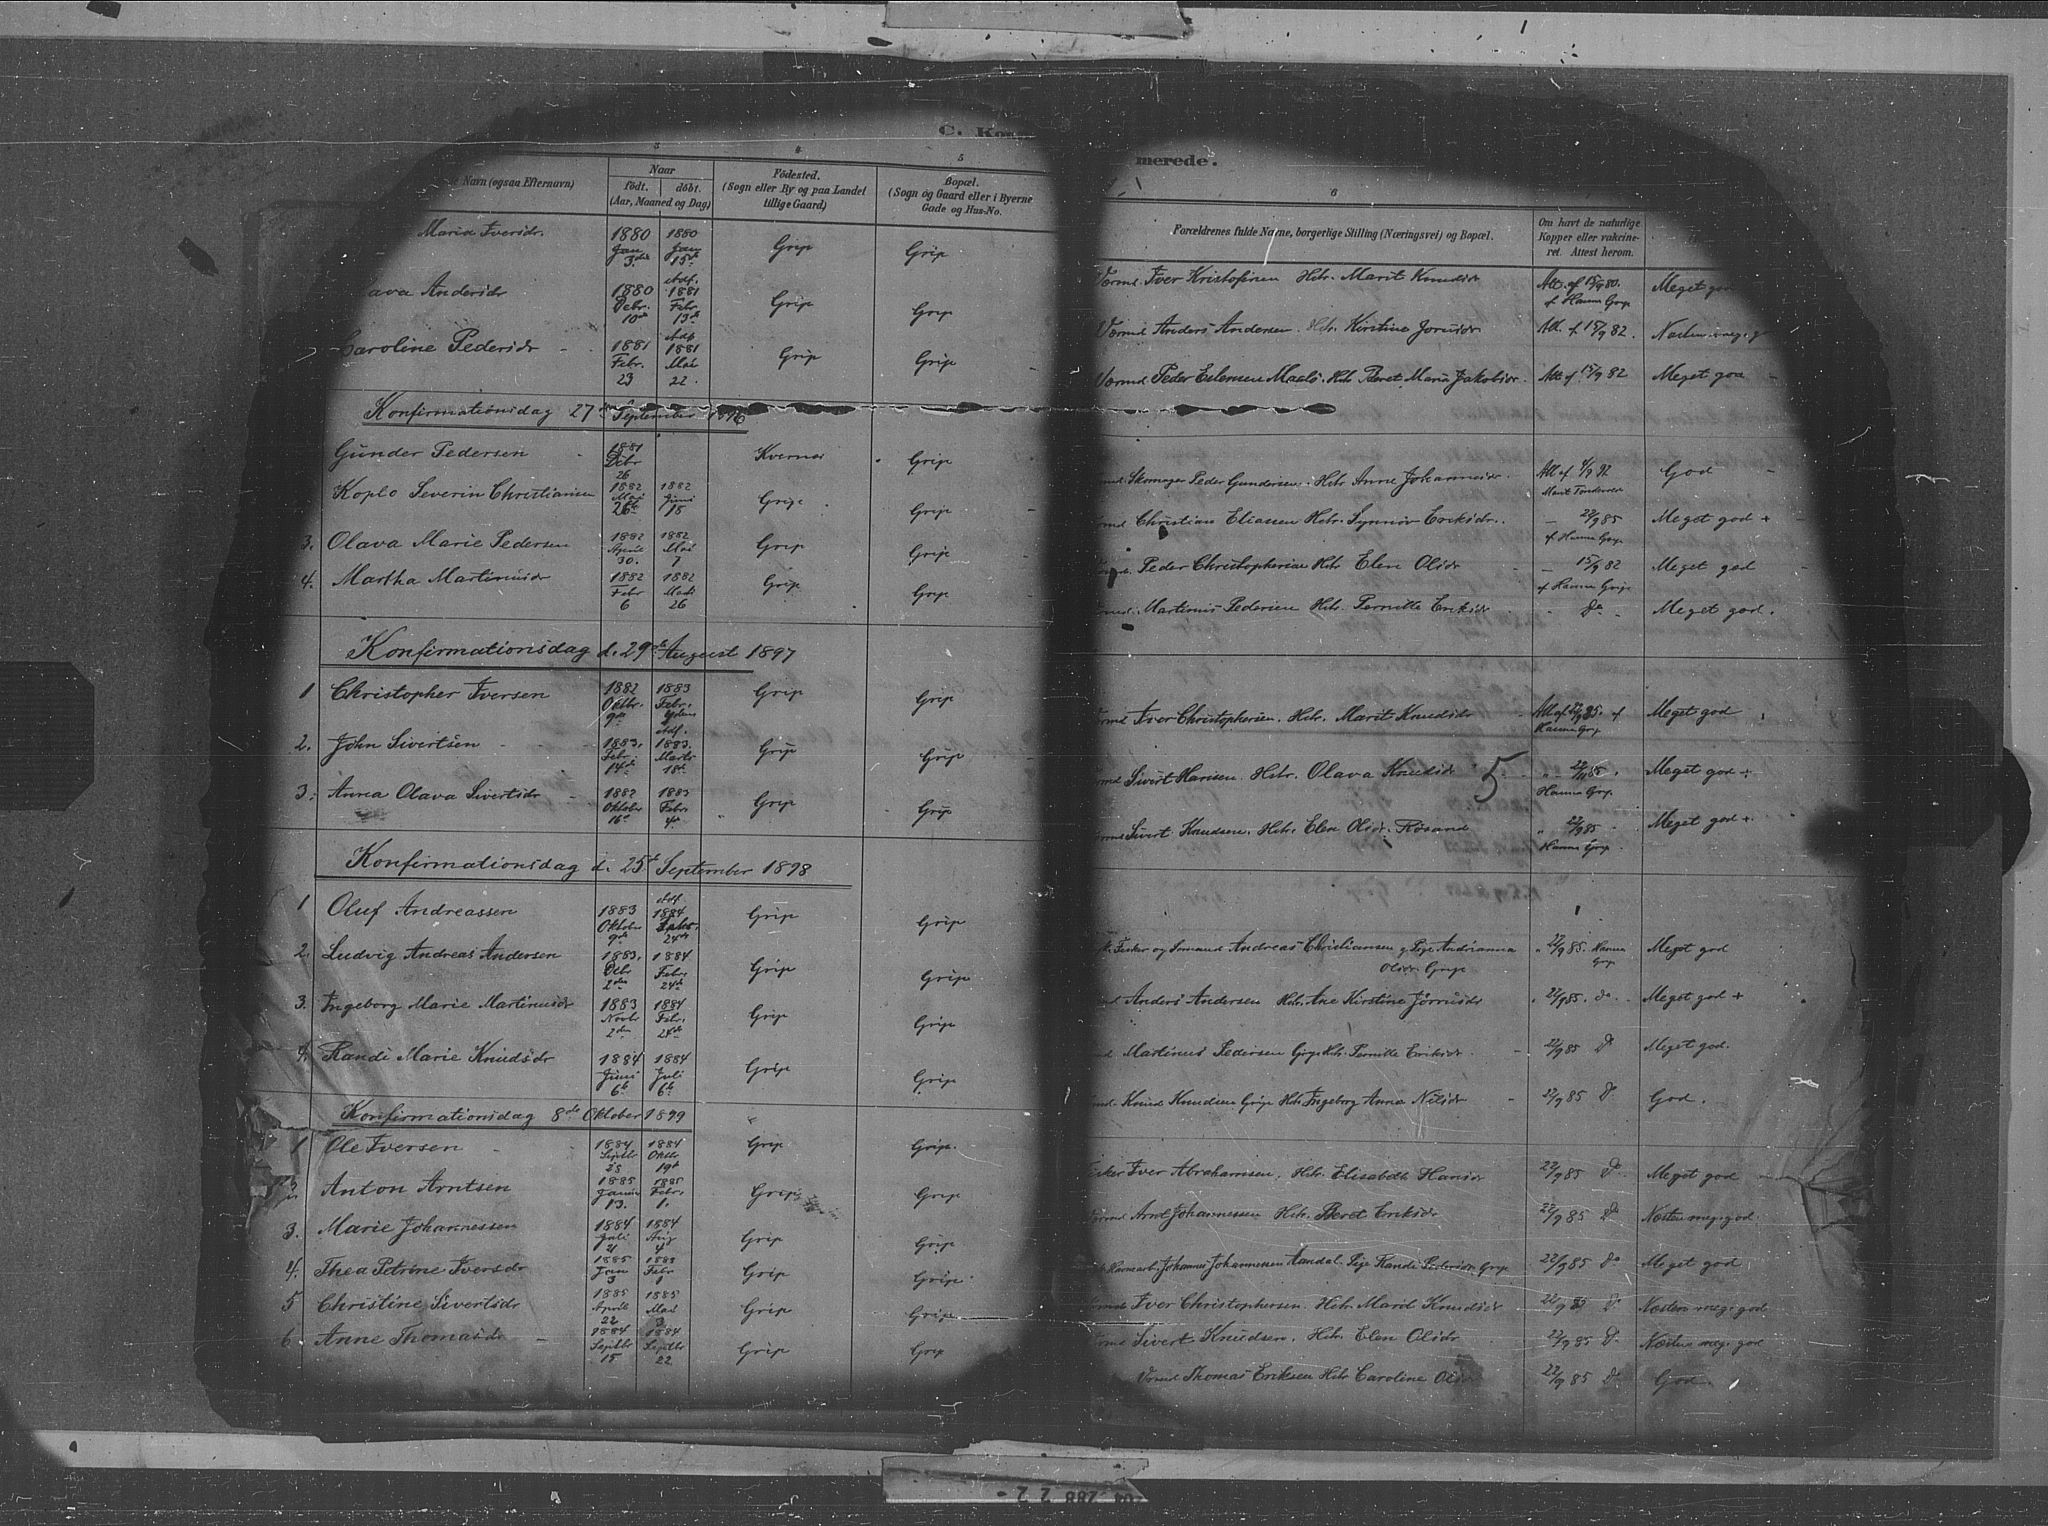 C. Kon
merede.
3 4 5 6
Navn (ogsaa Efternavn)
Naar
født. døbt.
(Aar, Maaned og Dag)
Fødested.
(Sogn eller By og paa Landet
tillige Gaard)
Bopæl.
(Sogn og Gaard eller i Byerne
Gade og Hus-No.
Forældrenes fulde Navne, borgerlige Stilling (Næringsvei) og Bopæl.
Om havt de naturlige
Kopper eller vakcine-
ret. Attest herom.
Maria Iversdr. 1880 Jan 3die 1880 Jan 15de Grip Grip Iver Kristofersen Hstr. Marit Knudsdr Att. af 15/9 80. af Hanna Grip Meget
Andersdr 1880 Debr. 10de Adf. 1881 Febr. 13de Grip Grip Anders Andersen. Hstr. Kirstine Jørnsdr Att. af 15/9 82. Næsten meg. g
Caroline Pedersdr 1881 Febr. 23 Adf 1881 Mai 22. Grip Grip Peder Hstr Beret Maria Jakobsdr. Att. af 15/9 82 Meget god
Konfirmationsdag 27de September 1896
Gunder Pedersen 1881 Debr 26 Kvernes Grip Skomager Peder Gundersen. Hstr Anne Johannesdr. Att af 4/9 92 God
Severin Christiansen 1882 Mai 26de 1882 Juni 15 Grip Grip Christian Eliassen Hstr. Synnøv Eriksdr. 22/9 85 af Hanna Grip Meget god +
3. Olava Marie Pedersen 1882 April 30. 1882 Mai 7 Grip Grip Peder Christophersen Hstr Elen Olsdr 15/9 82 af Hanna Grip Meget god
4. Martha Martinusdr 1882 Febr 6 1882 Marts 26 Grip Grip Martinus Pedersen Hstr. Pernille Eriksdr Do Meget god.
Konfirmationsdag d. 29de August 1897
1 Christopher Iversen 1882 Oktbr. 9de 1883 Febr. Grip Grip Iver Christophersen. Hstr. Marit Knudsdr Att af 22/9 85. af Hanna Grip Meget god
2. John Sivertsen 1883. Febr. 14de Adf. 1883. Marts 18de Grip Grip Sivert Hansen. Hstr. Olava Knudsdr 5 22/11 85 Hanna Grip. Meget god +
3. Anna Olava Sivertsdr 1882 Oktober 16de 1883 Febr 4de Grip Grip Sivert Knudsen. Hstr. Elen Olsdr. Røsand 22/9 85 Hanna Grip. Meget god +
Konfirmationsdag d. 25de September 1898
1 Oluf Andreassen 1883 Oktober 9de Adf 1884 Septbr. 24de Grip Grip Fisker og Sømand Andreas Christiansen g Pige Andrianna Olsdr. Grip 22/9 85. Hanna Grip Meget god
2. Ludvig Andreas Andersen 1883. Debr 2den 1884 Febr. 24de Grip Grip Anders Andersen Hstr. Ane Kirstine Jørnsdr 22/9 85. Do Meget god +
3. Ingeborg Marie Martinusdr 1883 Novbr 2den 1884 Febr. 24de Grip Grip Martinus Pedersen Grip Hstr. Pernille Eriksdr. 22/9 85 Do Meget god.
4. Randi Marie Knudsdr 1884 Juni 6te 1884 Juli 6te Grip Grip Knud Knudsen Grip Hstr Ingeborg Anna Nilsdr 22/9 85 Do God.
Konfirmationsdag 8de Oktober 1899
1 Ole Iversen 1884 Septbr 28 1884 Oktbr 19de Grip Grip. Iver Abrahamsen. Hstr. Elisabeth Hansdr 22/9 85 Do Meget god
2. Anton Arntsen 1885 Januar 13. 1885 Febr. 1. Grip Grip Arnt Johannessen Hstr. Beret Eriksdr 22/9 85 Do Næsten meg. god.
3. Marie Johannessen 1884 Juli 21 1884 Aug 4 Grip Grip Johannes Johannessen Aandal. Pige Randi Pedersdr. Grip 22/9 85 Do Meget god
4. Thea Petrine Iversdr 1885 Jan 3 1885 Febr 1 Grip Grip. Iver Christophersen. Hstr. Marit Knudsdr 22/9 85 Do Næsten meg. god
5 Christine Sivertsdr 1885 April 22 1885 Mai 3 Grip Grip Sivert Knudsen. Hstr. Elen Olsdr 22/9 85 Do. Næsten meg. god
6. Anne Thomasdr 1884 Septbr 15 1884 Septbr 22. Grip Grip Thomas Eriksen Hstr Caroline Olsdr 22/9 85 Do. God.